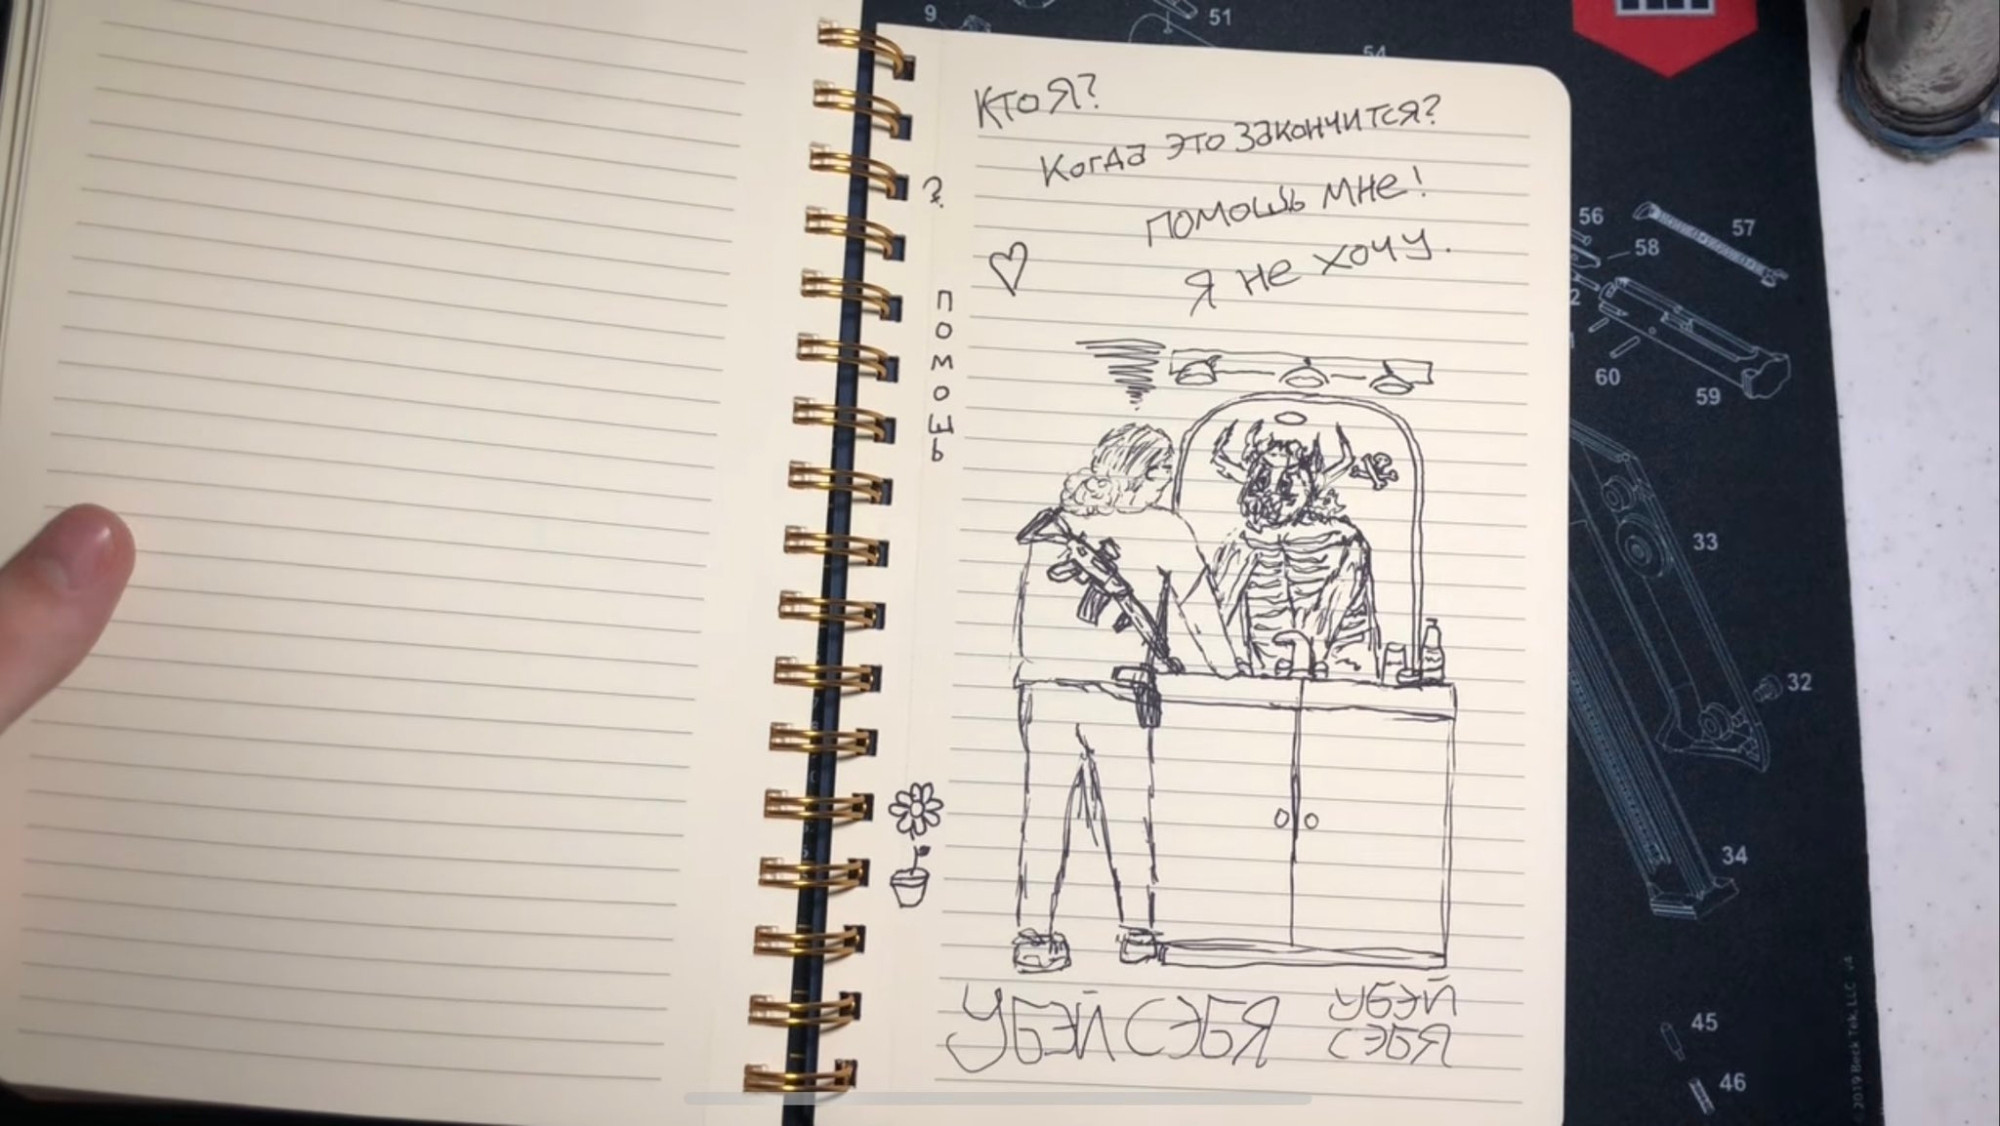 Кто Я?
Когда это закончится?
помошь мне!
Я не хочу.
?
помошь
УБЭЙ СЭБЯ
УБЭЙ
СЭБЯ
9
51
54
56
57
58
60
59
33
32
34
45
46
2019 Beck Tek, LLC v4